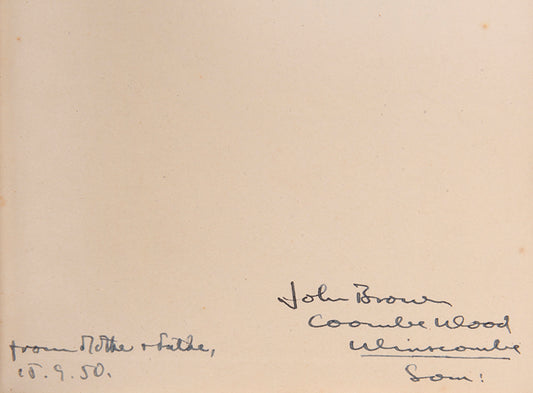 John Brown
Coombe Wood
Winscombe
Som:
from Mother & Father,
18.9.50.